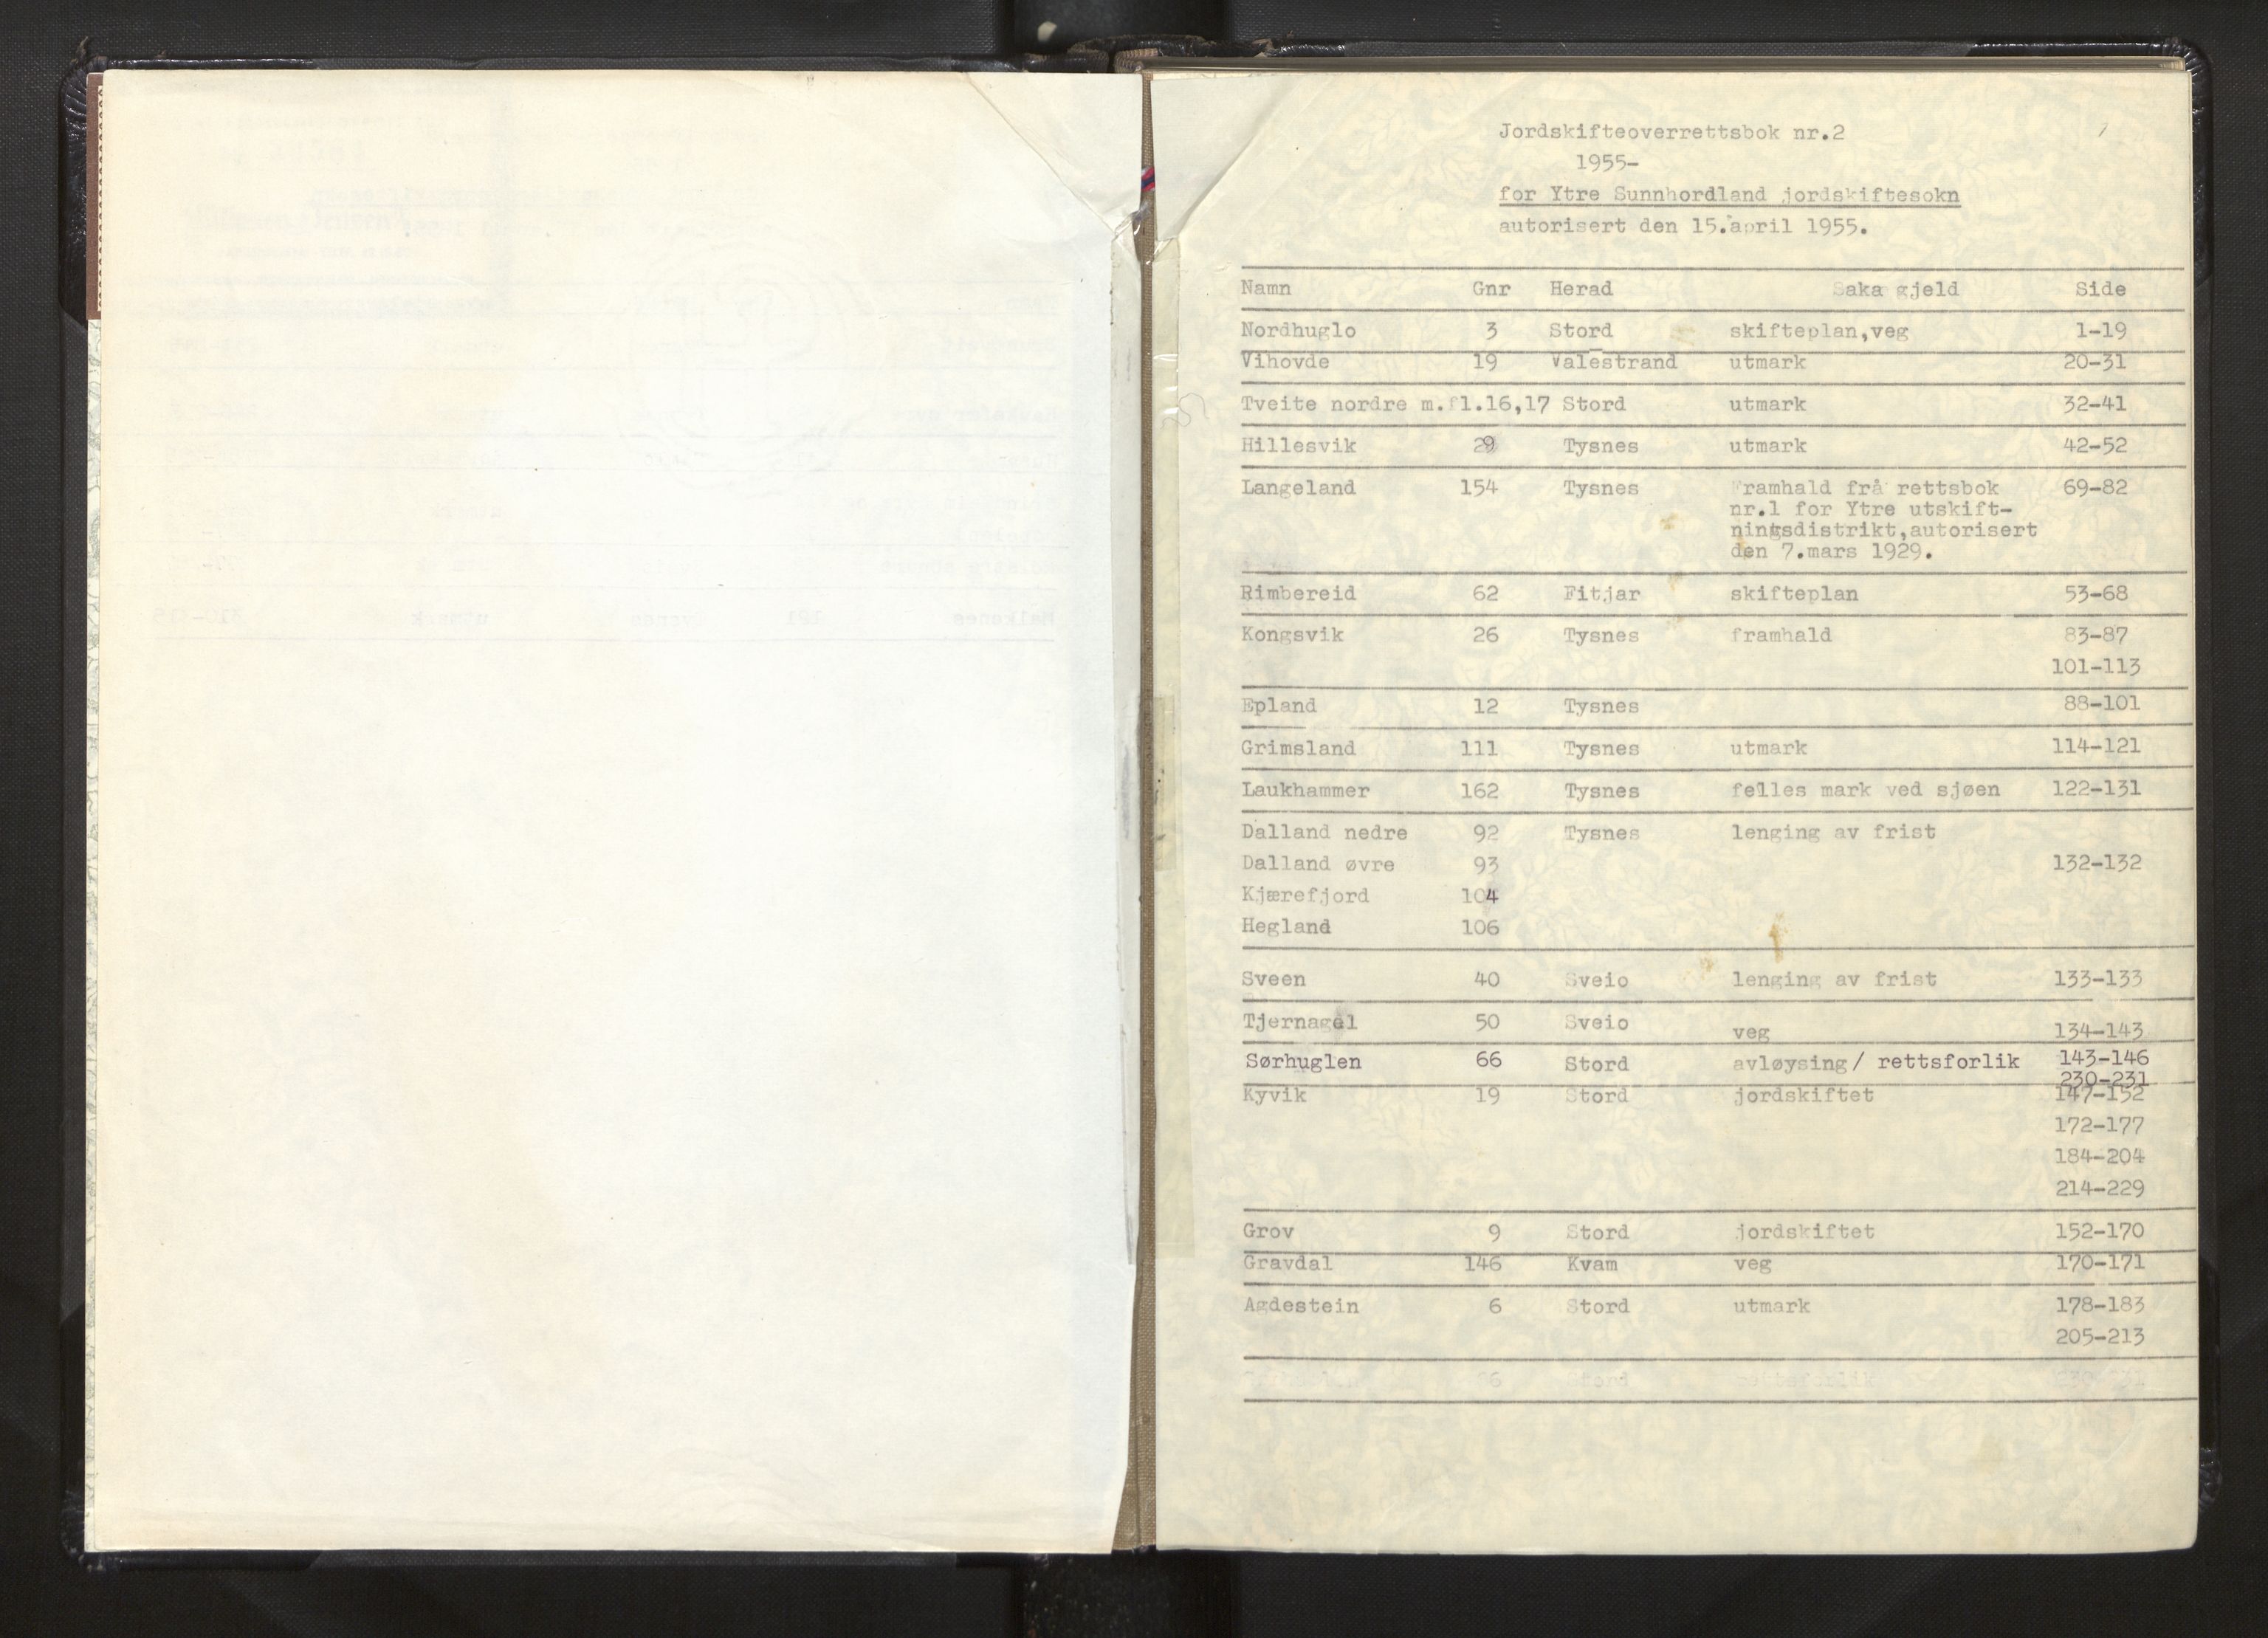 Jordskifteoverrettsbok nr.2
1955-
for Ytre Sunnhordland jordskiftesokn
autorisert den 15.april 1955.
Namn Gnr Herad Saka gjeld Side
Nordhuglo 3 Stord skifteplan,veg 1-19
Vihovde 19 Valestrand utmark 20-31
Tveite nordre m.fl.16,17 Stord utmark 32-41
Hillesvik 29 Tysnes utmark 42-52
Langeland 154 Tysnes Framhald frå rettsbok 69-82
nr.1 for Ytre utskift-
ningsdistrikt,autorisert
den 7.mars 1929.
Rimbereid 62 Fitjar skifteplan 53-68
Kongsvik 26 Tysnes framhald 83-87
101-113
Epland 12 Tysnes 88-101
Grimsland 111 Tysnes utmark 114-121
Laukhammer 162 Tysnes felles mark ved sjøen 122-131
Dalland nedre 92 Tysnes lenging av frist
Dalland øvre 93 132-132
Kjærefjord 104
Hegland 106
Sveen 40 Sveio lenging av frist 133-133
Tjernagel 50 Sveio veg 134-143
Sørhuglen 66 Stord avløysing/ rettsforlik 143-146
230-231
Kyvik 19 Stord jordskiftet 147-152
172-177
184-204
214-229
Grov 9 Stord jordskiftet 152-170
Gravdal 146 Kvam veg 170-171
Agdestein 6 Stord utmark 178-183
205-213
Stord rettsforlik